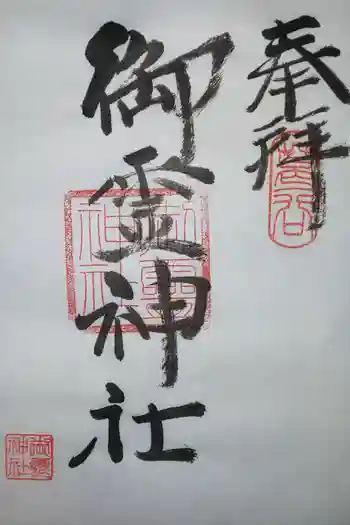 奉拝
葛谷
御霊神社
御霊神社
御霊神社